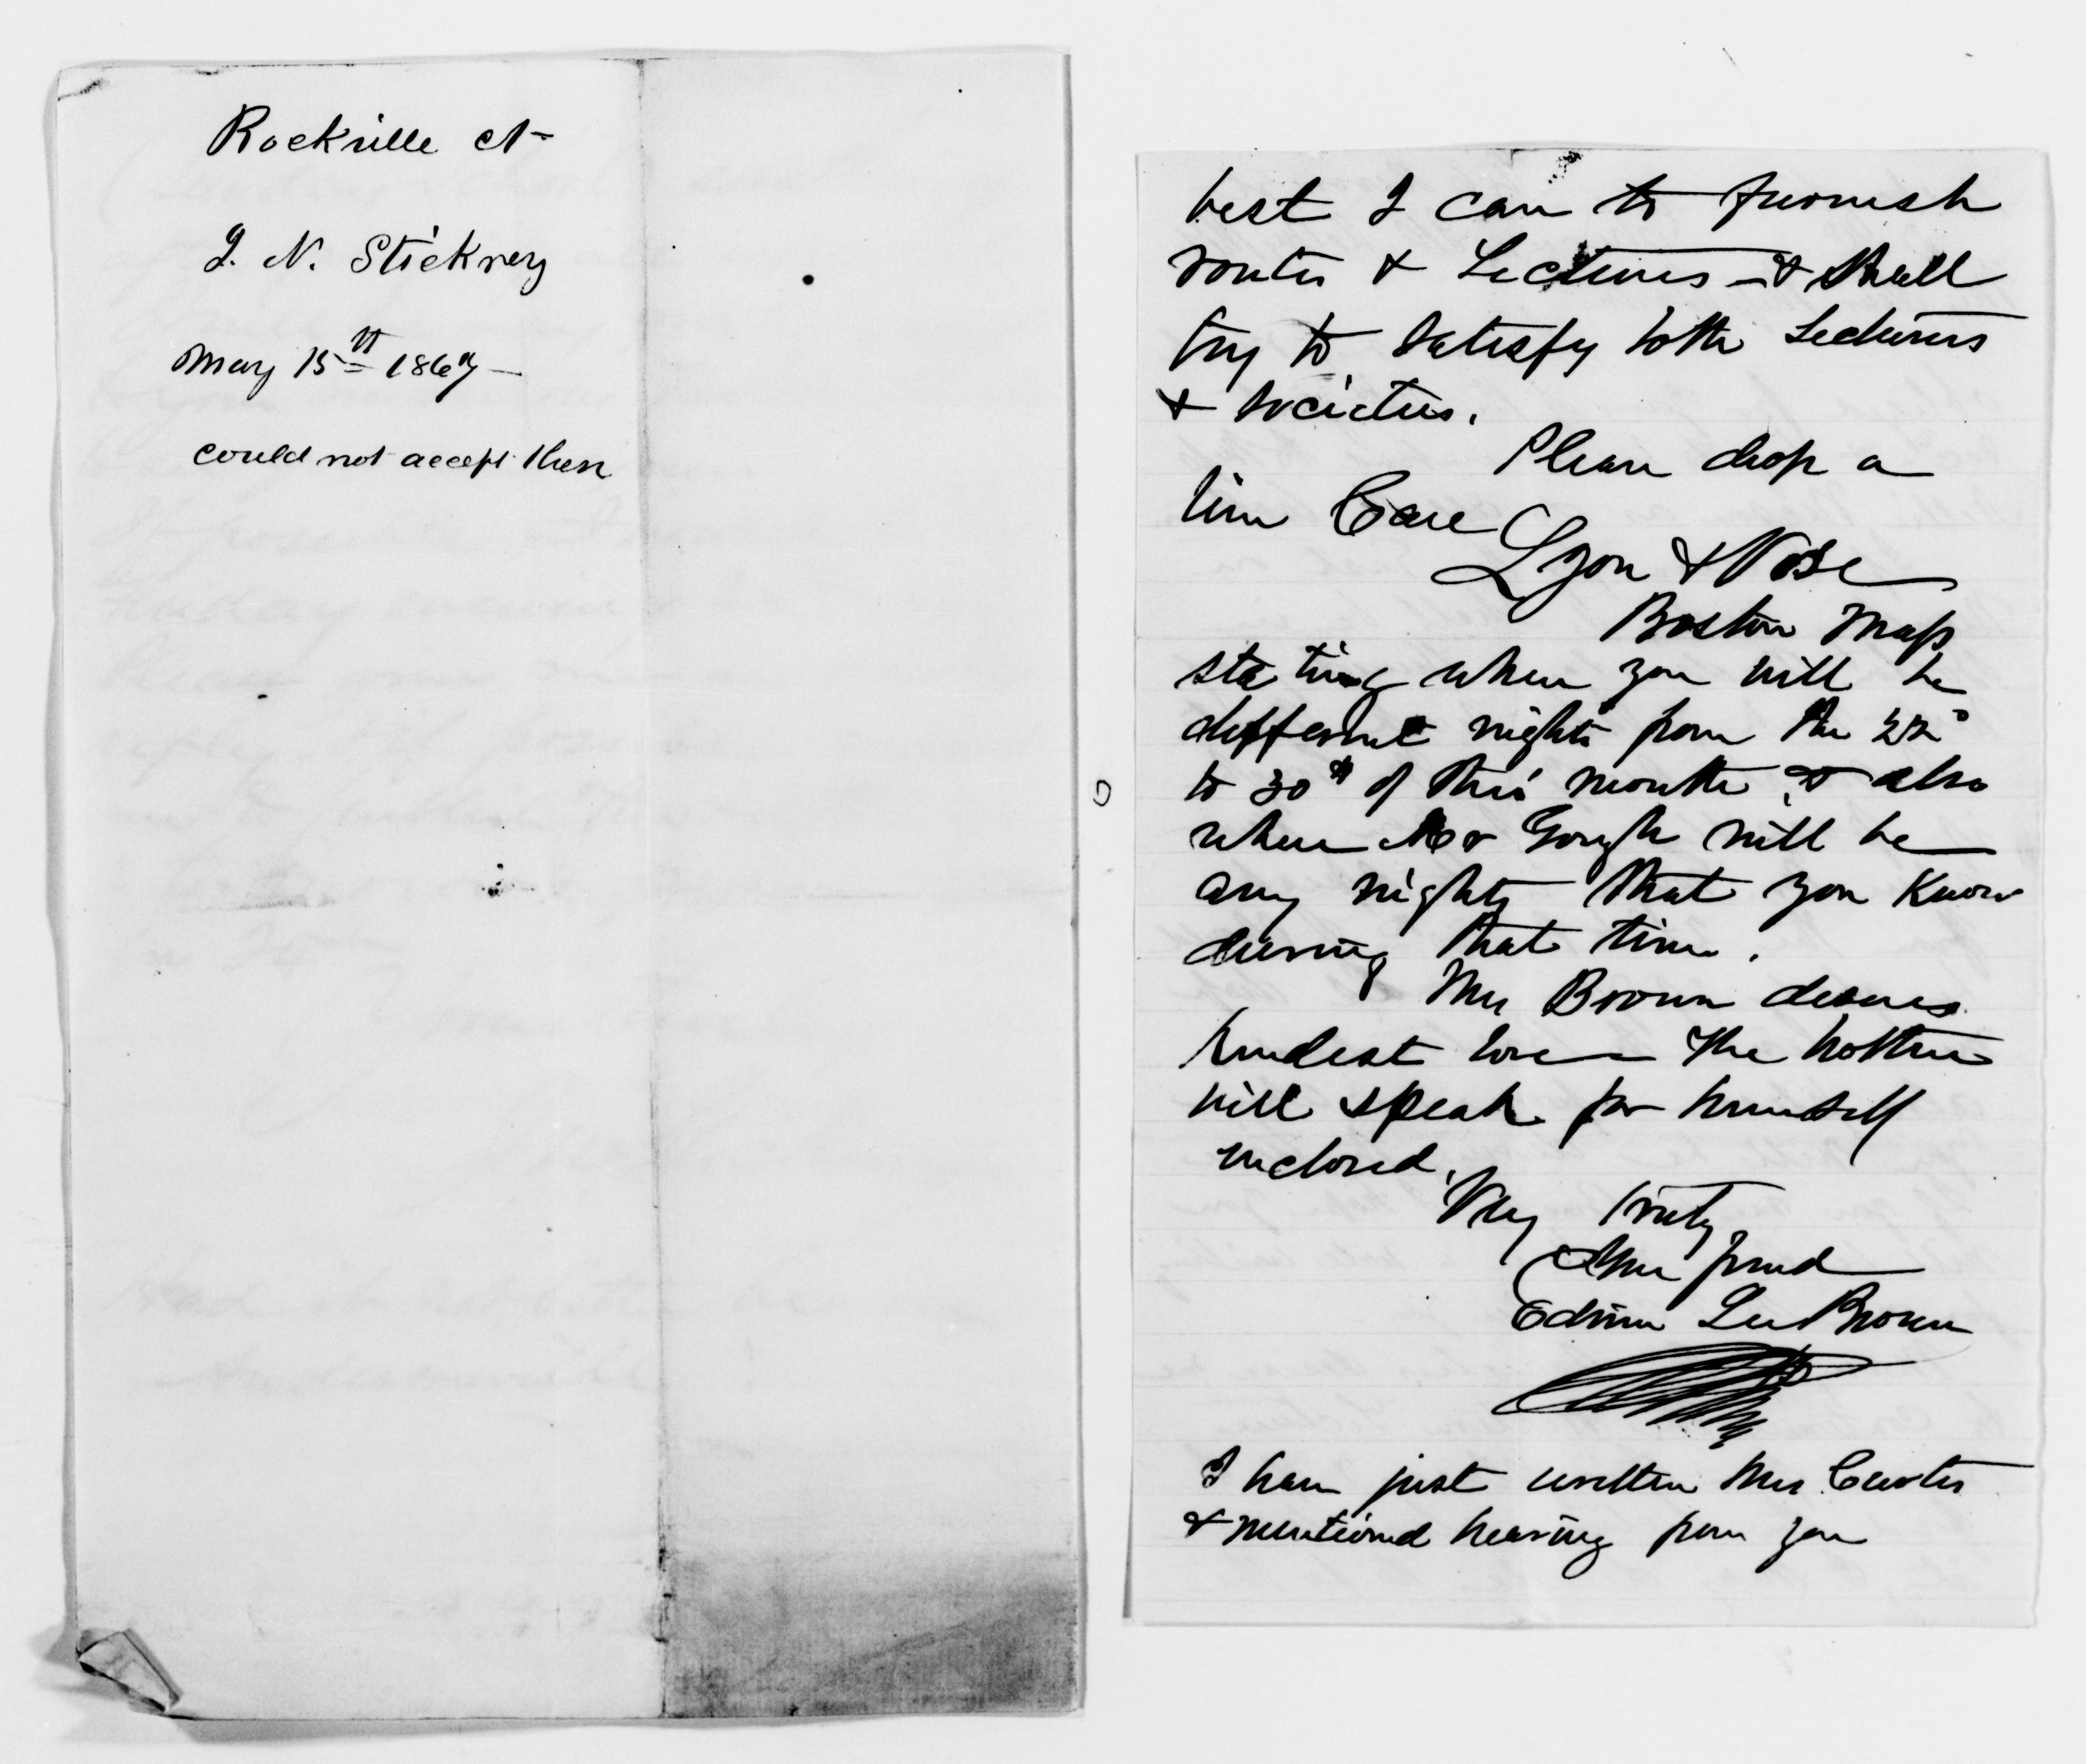 Rockville Ct
J. N. Stickney
May 15th 1867
could not accept then
best I can to furnish
routes & Lectures - & shall
try to satisfy both Lecturers
& Societies.
Please drop a
line Care
Lyon & Vose
Boston Mass
stating where you will be
different nights from the 22d
to 30th of this month, & also
where Mr Gough will be
any nights that you know
during that time.
Mrs Brown desires
kindest love - The
will speak for himself
inclosed.
Very truly
Your friend
Edwin Lee Brown
I have just written Mrs
& mentioned hearing from you